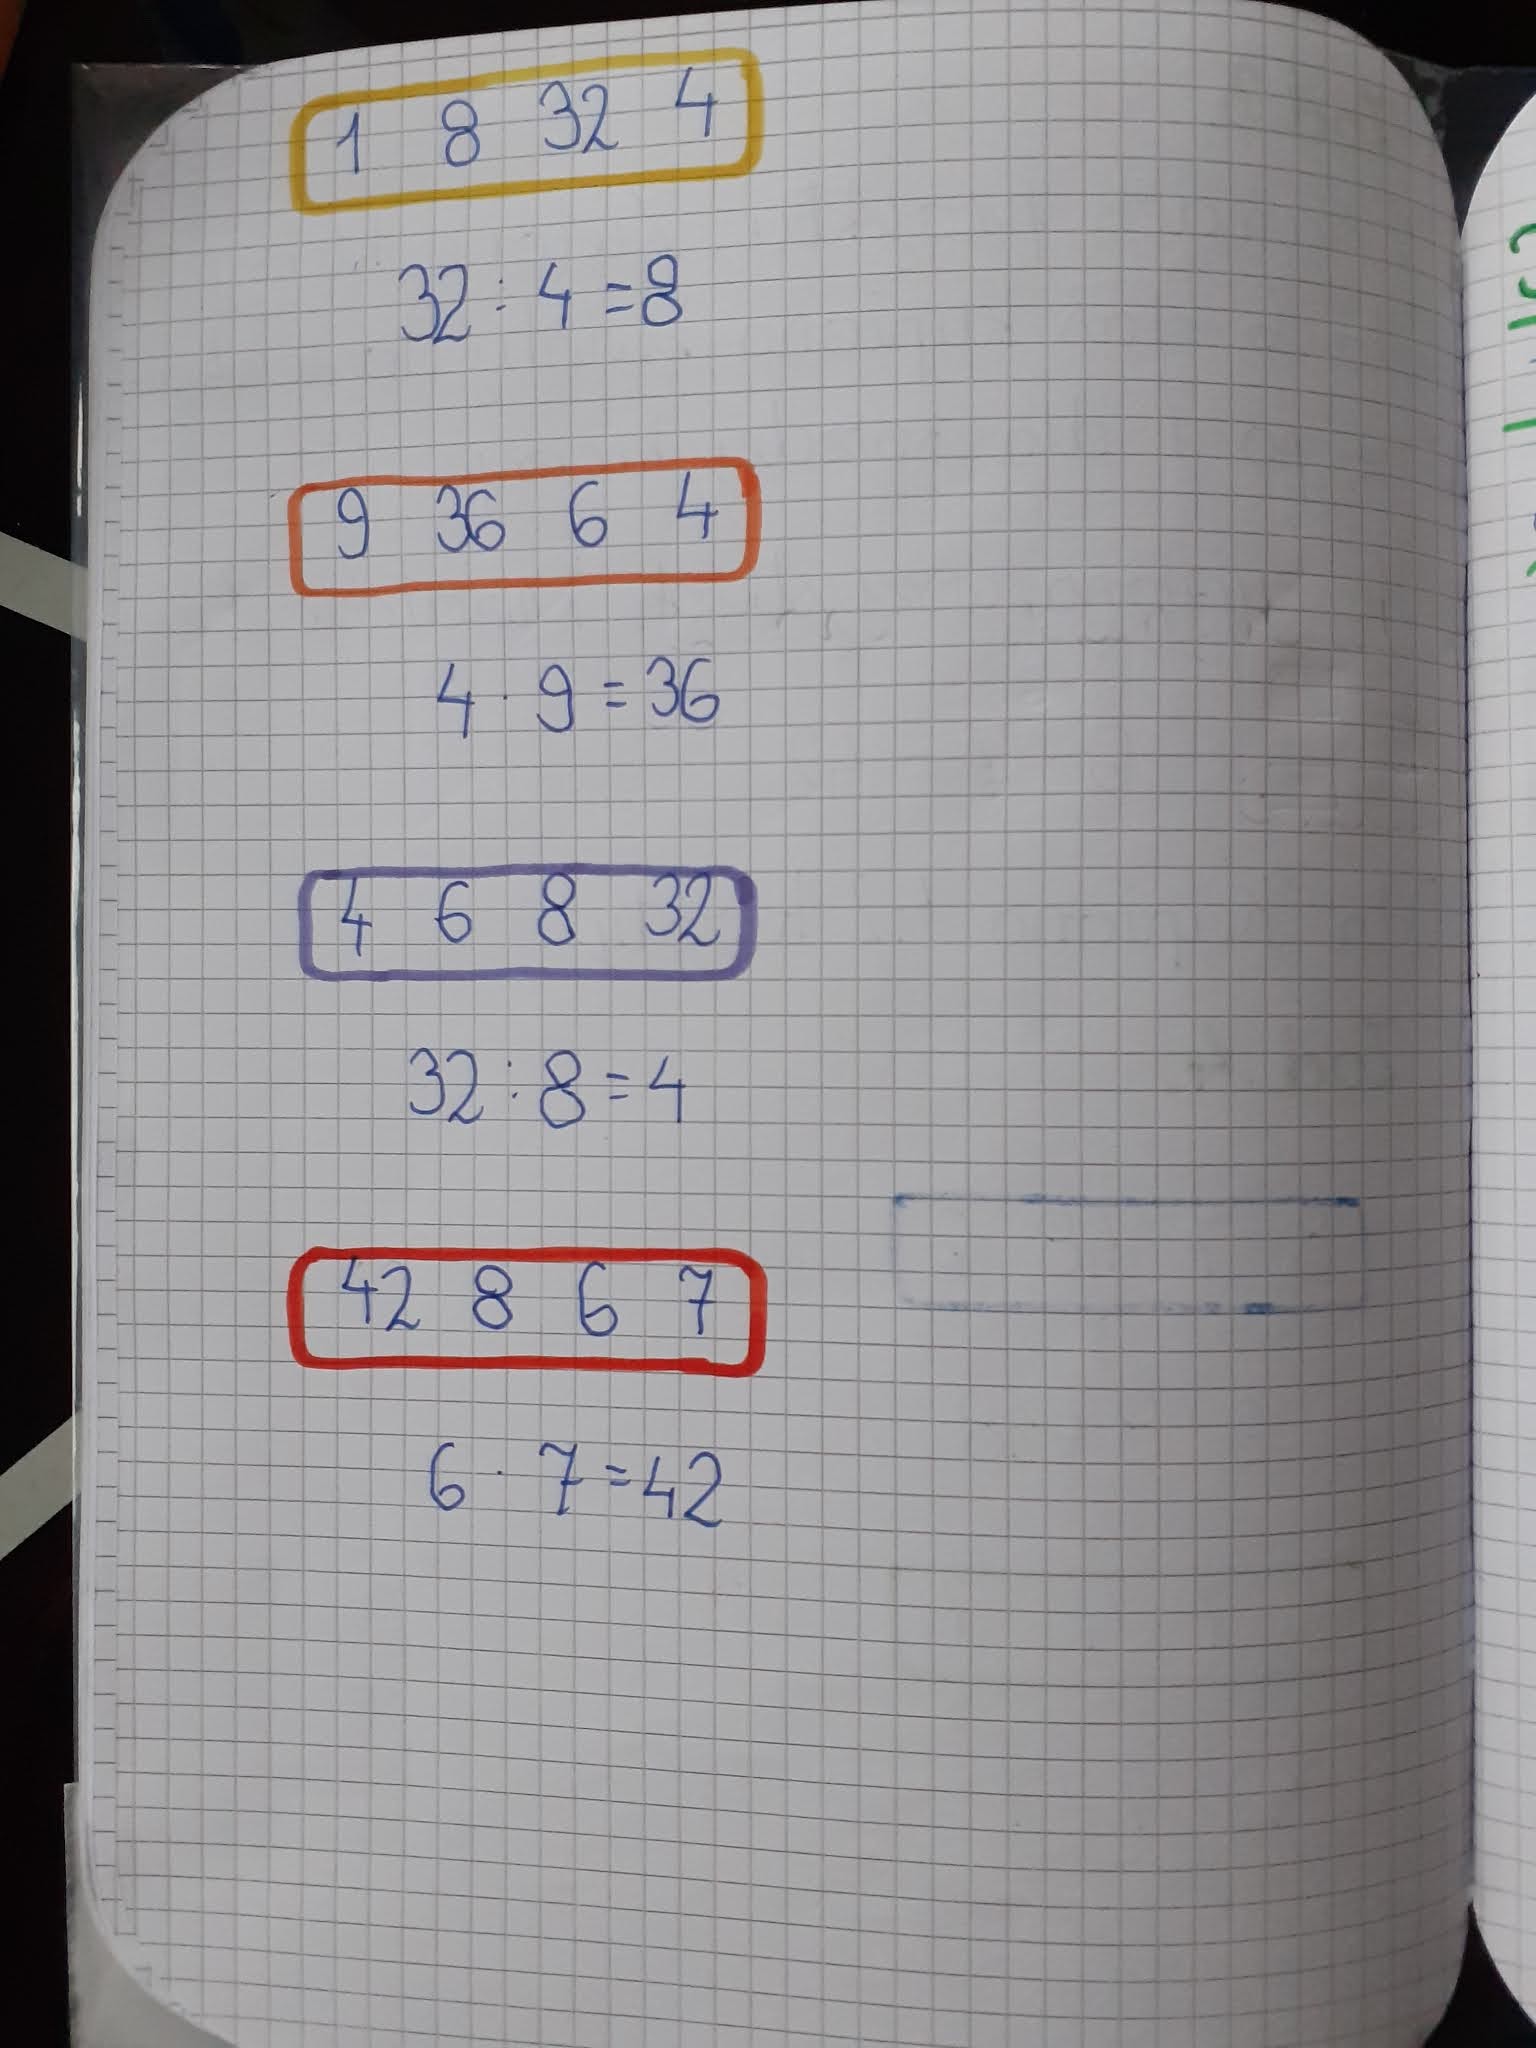 1 8 32 4
32 : 4 = 8
9 36 6 4
4 · 9 = 36
4 6 8 32
32 : 8 = 4
42 8 6 7
6 · 7 = 42